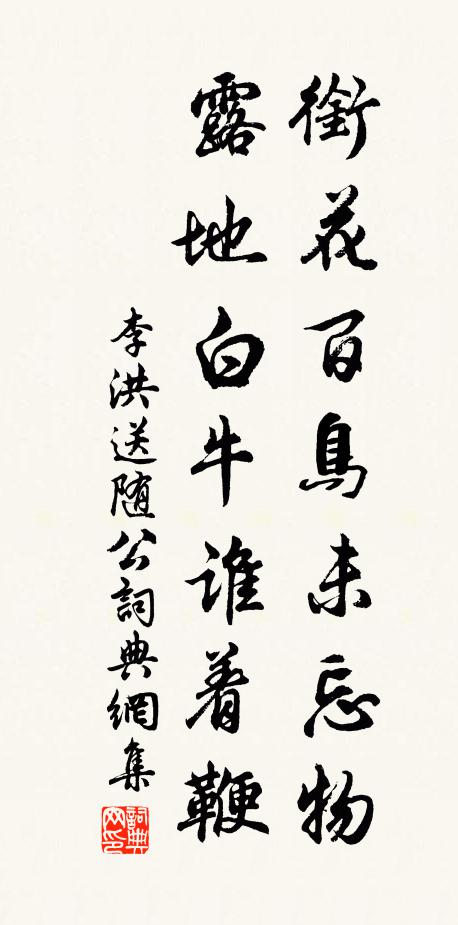 銜花百鳥未忘物
露地白牛谁着鞭
李洪送随公詞典網集
詞典网印